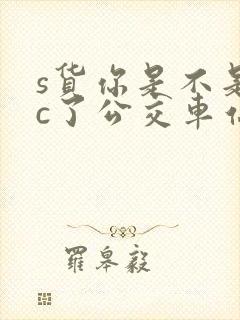 s货你是不是
c了公交车
羅皋毅